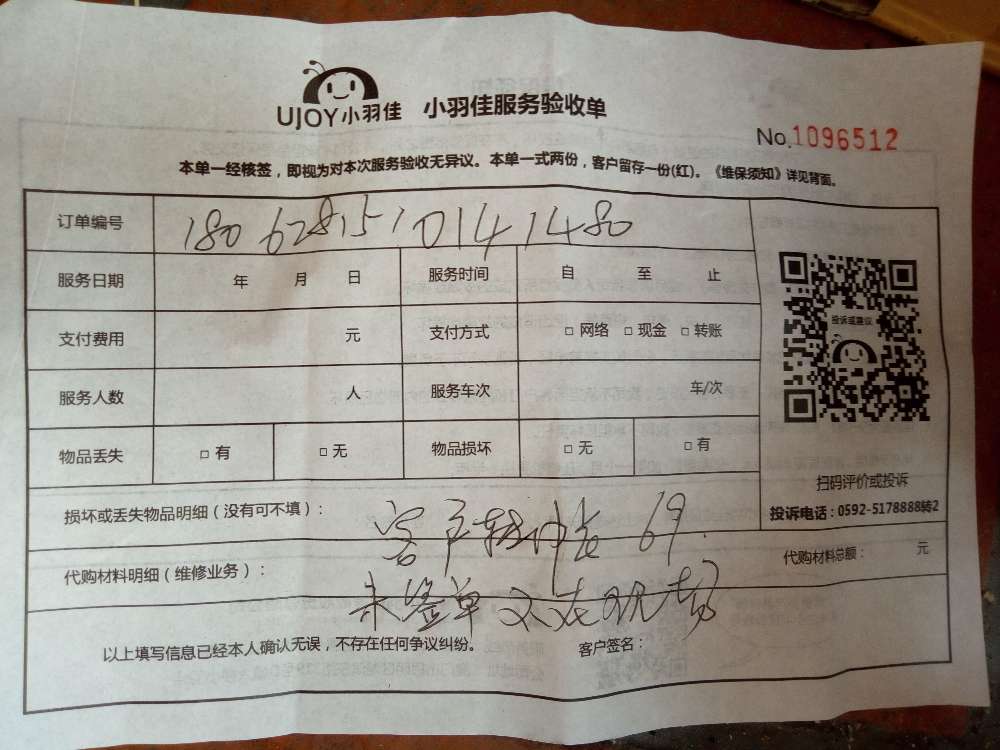 UJOY小羽佳 小羽佳服务验收单
No.1096512
本单一经核签，即视为对本次服务验收无异议。本单一式两份，客户留存一份(红)。《维保须知》详见背面。
订单编号 1806281510141480
服务日期 年 月 日 服务时间 自 至 止
投诉或建议
支付费用 元 支付方式 □ 网络 □ 现金 □ 转账
服务人数 人 服务车次 车/次
物品丢失 □ 有 □ 无 物品损坏 □ 无 □ 有
扫码评价或投诉
投诉电话：0592-5178888转2
损坏或丢失物品明细（没有可不填）： 客户 69
代购材料明细（维修业务）： 代购材料总额： 元
未签单 不在现场
以上填写信息已经本人确认无误，不存在任何争议纠纷。 客户签名：